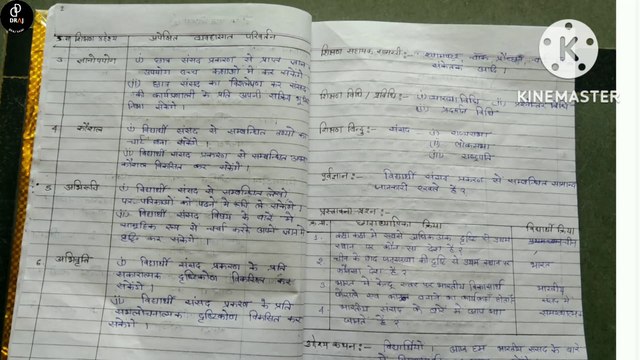 DRAJ
KINEMASTER
क्र.सं. शिक्षण उद्देश्य अपेक्षित व्यवहारगत परिवर्तन
3 ज्ञानोपयोग (i) छात्र संसद प्रकरण से प्राप्त ज्ञान
उपयोग उच्च कक्षाओं में कर सकेंगे।
(ii) छात्र संसद का विश्लेषण कर संसद
की कार्यप्रणाली के प्रति अपनी
विकास सकेंगे।
4 कौशल (i) विद्यार्थी संसद से सम्बन्धित तथ्यों का
चार्ट बना सकेंगे।
(ii) विद्यार्थी संसद प्रकरण से सम्बन्धित
कौशल विकसित कर सकेंगे।
5 अभिरुचि (i) विद्यार्थी संसद से सम्बन्धित लेखों
पत्र-पत्रिकाओं को पढ़ने में रुचि ले सकेंगे।
(ii) विद्यार्थी संसद विषय के बारे में
सामूहिक रूप से चर्चा करके अपने ज्ञान में
वृद्धि कर सकेंगे।
6 अभिवृत्ति (i) विद्यार्थी संसद प्रकरण के प्रति
सकारात्मक दृष्टिकोण विकसित कर
सकेंगे।
(ii) विद्यार्थी संसद प्रकरण के प्रति
दृष्टिकोण विकसित कर
सकेंगे।
शिक्षण सहायक सामग्री:- श्यामपट्ट, चाक,
संकेतक आदि।
शिक्षण विधि / प्रविधि:- (i) व्याख्या विधि (ii) प्रश्नोत्तर विधि
(iii) प्रदर्शन विधि
शिक्षण बिन्दु:- संसद (i) राज्यसभा
(ii) लोकसभा
(iii) राष्ट्रपति
पूर्वज्ञान:- विद्यार्थी संसद प्रकरण से सम्बन्धित सामान्य
जानकारी रखते हैं?
प्रस्तावना प्रश्न:-
क्र.सं. छात्राध्यापिका क्रिया विद्यार्थी क्रिया
1. सबसे अधिक दृष्टि से प्रथम
स्थान पर कौनसा देश है? चीन
2 चीन के बाद जनसंख्या की दृष्टि से
कौनसा देश है? भारत
3 भारत में केन्द्र स्तर पर भारतीय विकासार्थ
कानून बनाने का कार्य कहाँ होता है? भारतीय संसद में
4 भारतीय संसद के बारे में आप क्या
जानते हैं? समस्यात्मक
उद्देश्य कथन:- विद्यार्थियों! आज हम भारतीय संसद के बारे